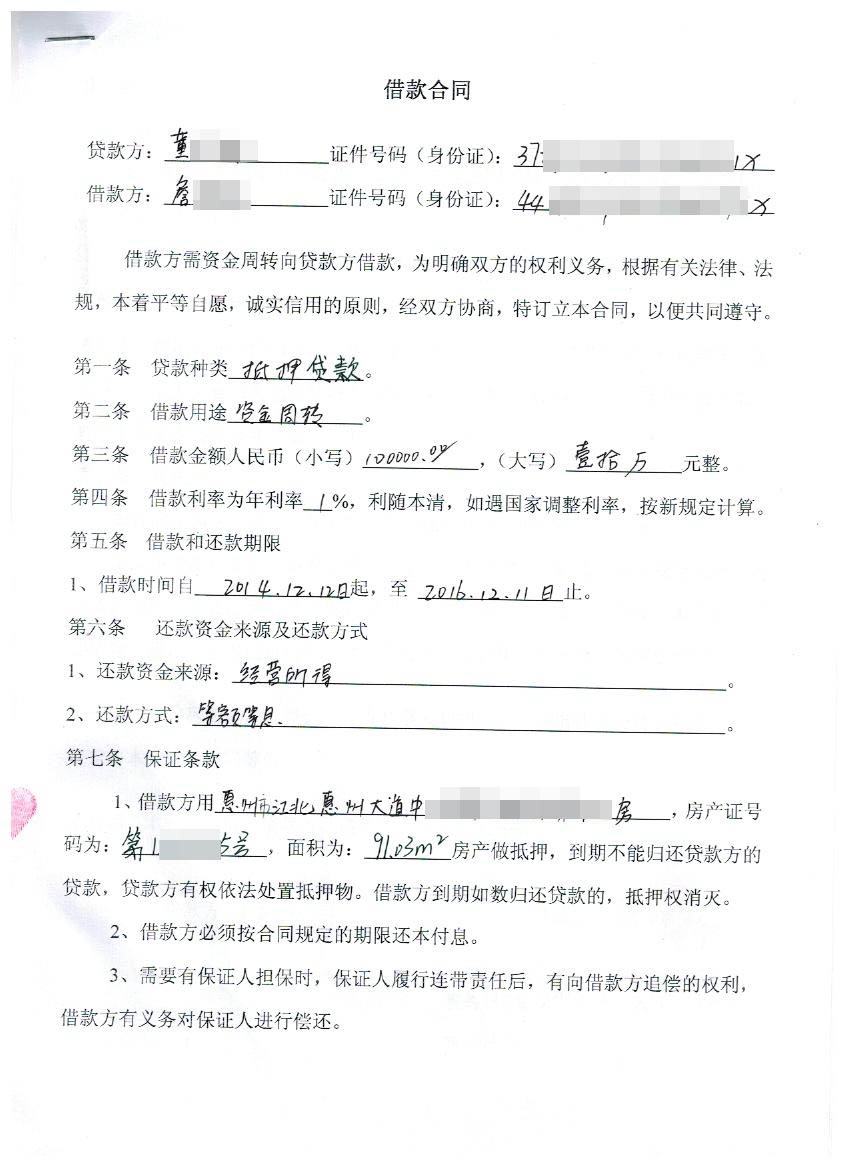 借款合同
贷款方：董 证件号码（身份证）：37 1X
借款方：詹 证件号码（身份证）：44 X
借款方需资金周转向贷款方借款，为明确双方的权利义务，根据有关法律、法
规，本着平等自愿，诚实信用的原则，经双方协商，特订立本合同，以便共同遵守。
第一条 贷款种类抵押贷款。
第二条 借款用途资金周转。
第三条 借款金额人民币（小写）100000.00，（大写）壹拾万元整。
第四条 借款利率为年利率1%，利随本清，如遇国家调整利率，按新规定计算。
第五条 借款和还款期限
1、借款时间自2014.12.12日起，至2016.12.11日止。
第六条 还款资金来源及还款方式
1、还款资金来源：经营所得。
2、还款方式：等额等息.。
第七条 保证条款
1、借款方用惠州市江北惠州大道中 房，房产证号
码为：第1 5号，面积为：91.03m²房产做抵押，到期不能归还贷款方的
贷款，贷款方有权依法处置抵押物。借款方到期如数归还贷款的，抵押权消灭。
2、借款方必须按合同规定的期限还本付息。
3、需要有保证人担保时，保证人履行连带责任后，有向借款方追偿的权利，
借款方有义务对保证人进行偿还。